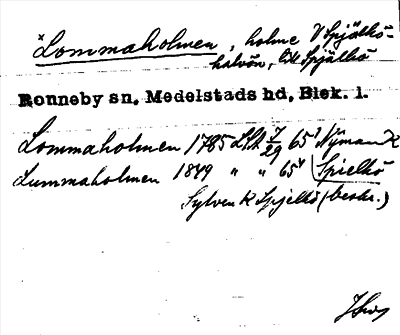 *Lommaholmen, holme V Spjälkö-
halvön, till Spjälkö
Ronneby sn, Medelstads hd, Blek. l.
Lommaholmen 1785 LSA J/29 65¹ Nyman K
Lummaholmen 1849 " " 65⁴ Spielkö
Sylven K Spjelkö (beskr.)